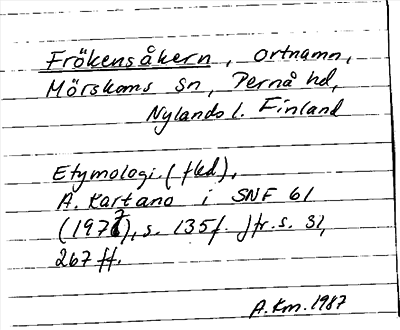 Frökensåkern, ortnamn,
Mörskoms sn, Pernå hd,
Nylands l. Finland
Etymologi (fled),
A. Kartano i SNF 61
(1977), s. 135f. Jfr. s. 31,
267 ff.
A.Km. 1987